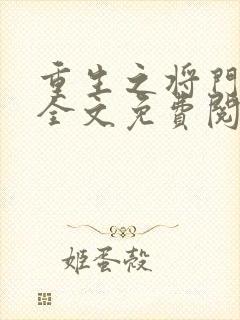 重生之将門
全文免費閱
姬蛋殼